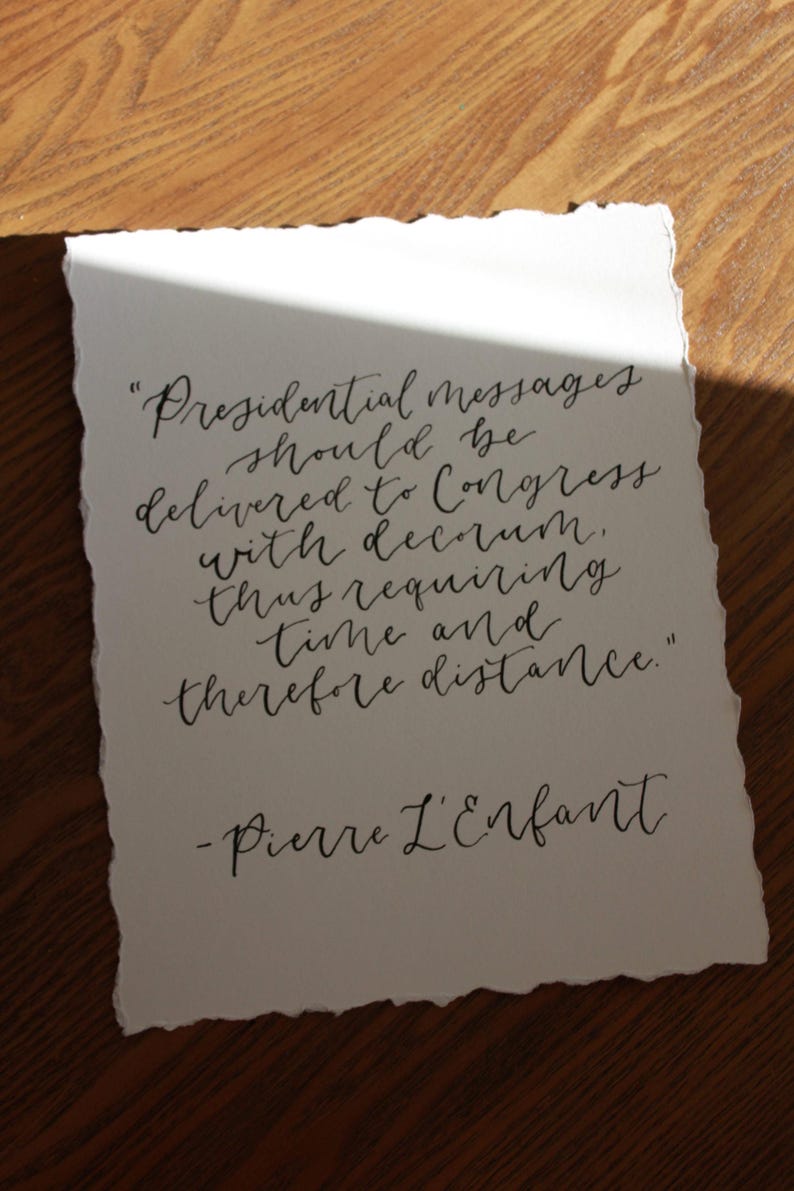 "Presidential messages
should be
delivered to Congress
with decorum,
thus requiring
time and
therefore distance."
- Pierre L'Enfant